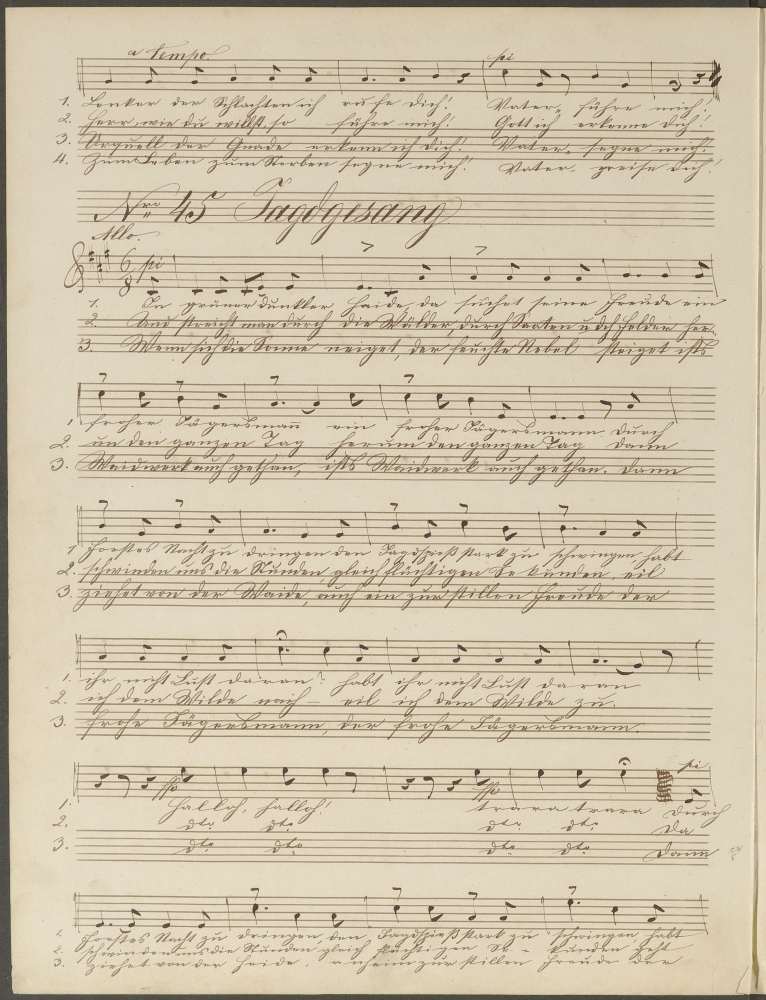 a Tempo.
pi
1. Lenker der Schlachten ich rufe dich! Vater, führe mich!
2. Herr, wie du willst, so führe mich! Gott ich erkenne dich!
3. Urquell der Gnade erkenn ich dich! Vater, segne mich!
4. Zum Leben zum Sterben segne mich! Vater, preise dich!
Nro 45 Jagdgesang
Allo.
6/8 pi
1. In grüner dunkler Haide, da suchet seine Freude ein
2. Und streicht man durch die Wälder, durch Saaten u. Felder her
3. Wenn sich die Sonne neiget, der feuchte Nebel steiget ists
1. froher Jägersmañ ein froher Jägersmann Durch
2. um den ganzen Tag herum den ganzen Tag dann
3. Waidwerk auch gethan, ists Waidwerk auch gethan. Dann
1 Forstes Nacht zu dringen den Jagdspieß stark zu schwingen habt
2. schwinden uns die Stunden gleich flüchtigen Sekunden, eil
3. ziehet von der Haide, auch ein zur stillen Freude der
1. ihr nicht Lust daran? habt ihr nicht Lust daran
2. ich dem Wilde nach – eil ich dem Wilde zu.
3. frohe Jägersmann, der frohe Jägersmann.
pi
1. Halloh, halloh! trara trara Durch
2. dto dto dto dto Da
3. dto dto dto dto Dann
1. Forstes Nacht zu dringen, den Jagdspieß stark zu schwingen habt
2. schwinden uns die Stunden, gleich flüchtigen Se- kunden
3. ziehet von der Heide, zur stillen Freude der